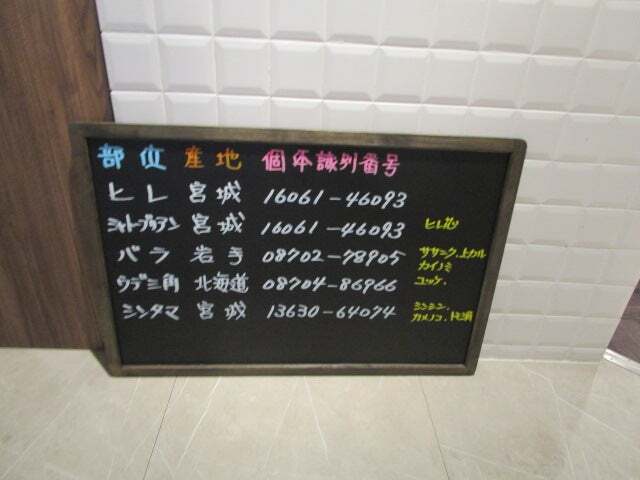 部位 産地 個体識別番号
ヒレ 宮城 16061-46093
シャトーブリアン 宮城 16061-46093 ヒレ芯
バラ 岩手 08702-78905 ササニク.上カル
カイノミ
ウデ三角 北海道 08704-86966 ユッケ.
シンタマ 宮城 13630-64074 シンシン.
カメノコ.